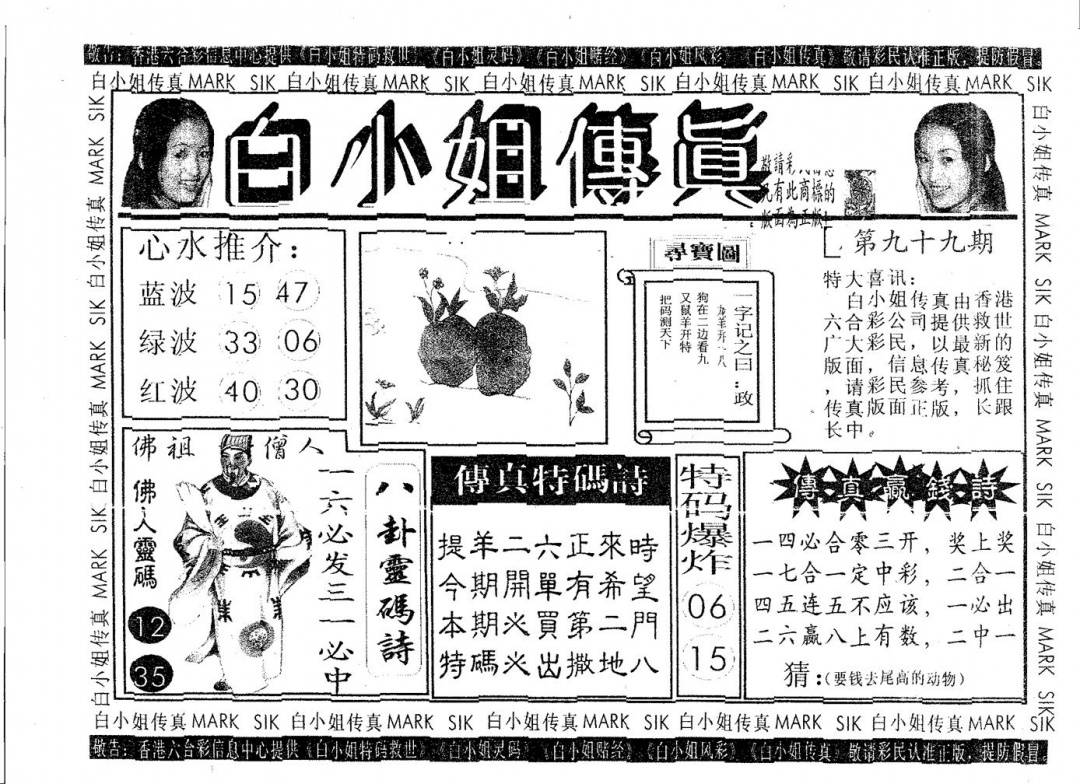 敬告：香港六合彩信息中心提供《白小姐特码救世》《白小姐灵码》《白小姐赌经》《白小姐风彩》《白小姐传真》敬请彩民认准正版，提防假冒
白小姐传真MARK SIK 白小姐传真MARK SIK 白小姐传真MARK SIK 白小姐传真MARK SIK 白小姐传真MARK SIK
白小姐传真 MARK SIK 白小姐传真 MARK SIK 白小姐传真 MARK SIK
白小姐传真 MARK SIK 白小姐传真 MARK SIK 白小姐传真 MARK SIK
白小姐傳真
敬請彩
有此商標的
版面為正版
心水推介：
蓝波 15 47
绿波 33 06
红波 40 30
尋寶圖
一字记之曰：政
龙羊开一八
狗在二边看九
又鼠羊开特
把码测天下
第九十九期
特大喜讯：
白小姐传真由香港
六合彩公司提供救世
广大彩民，以最新的
版面，信息传真秘笈
，请彩民参考，抓住
传真版面正版，长跟
长中。
佛祖僧人
佛人靈碼
12
35
一六必发三一必中
八卦靈碼詩
傳真特碼詩
提羊二六正來時
今期開單有希望
本期火買第二門
特碼火出撒地八
特码爆炸
06
15
傳真贏錢詩
一四必合零三开，奖上奖
一七合一定中彩，二合一
四五连五不应该，一必出
二六赢八上有数，二中一
猜：(要钱去尾高的动物)
白小姐传真MARK SIK 白小姐传真MARK SIK 白小姐传真MARK SIK 白小姐传真MARK SIK 白小姐传真MARK SIK
敬告：香港六合彩信息中心提供《白小姐特码救世》《白小姐灵码》《白小姐赌经》《白小姐风彩》《白小姐传真》敬请彩民认准正版，提防假冒。